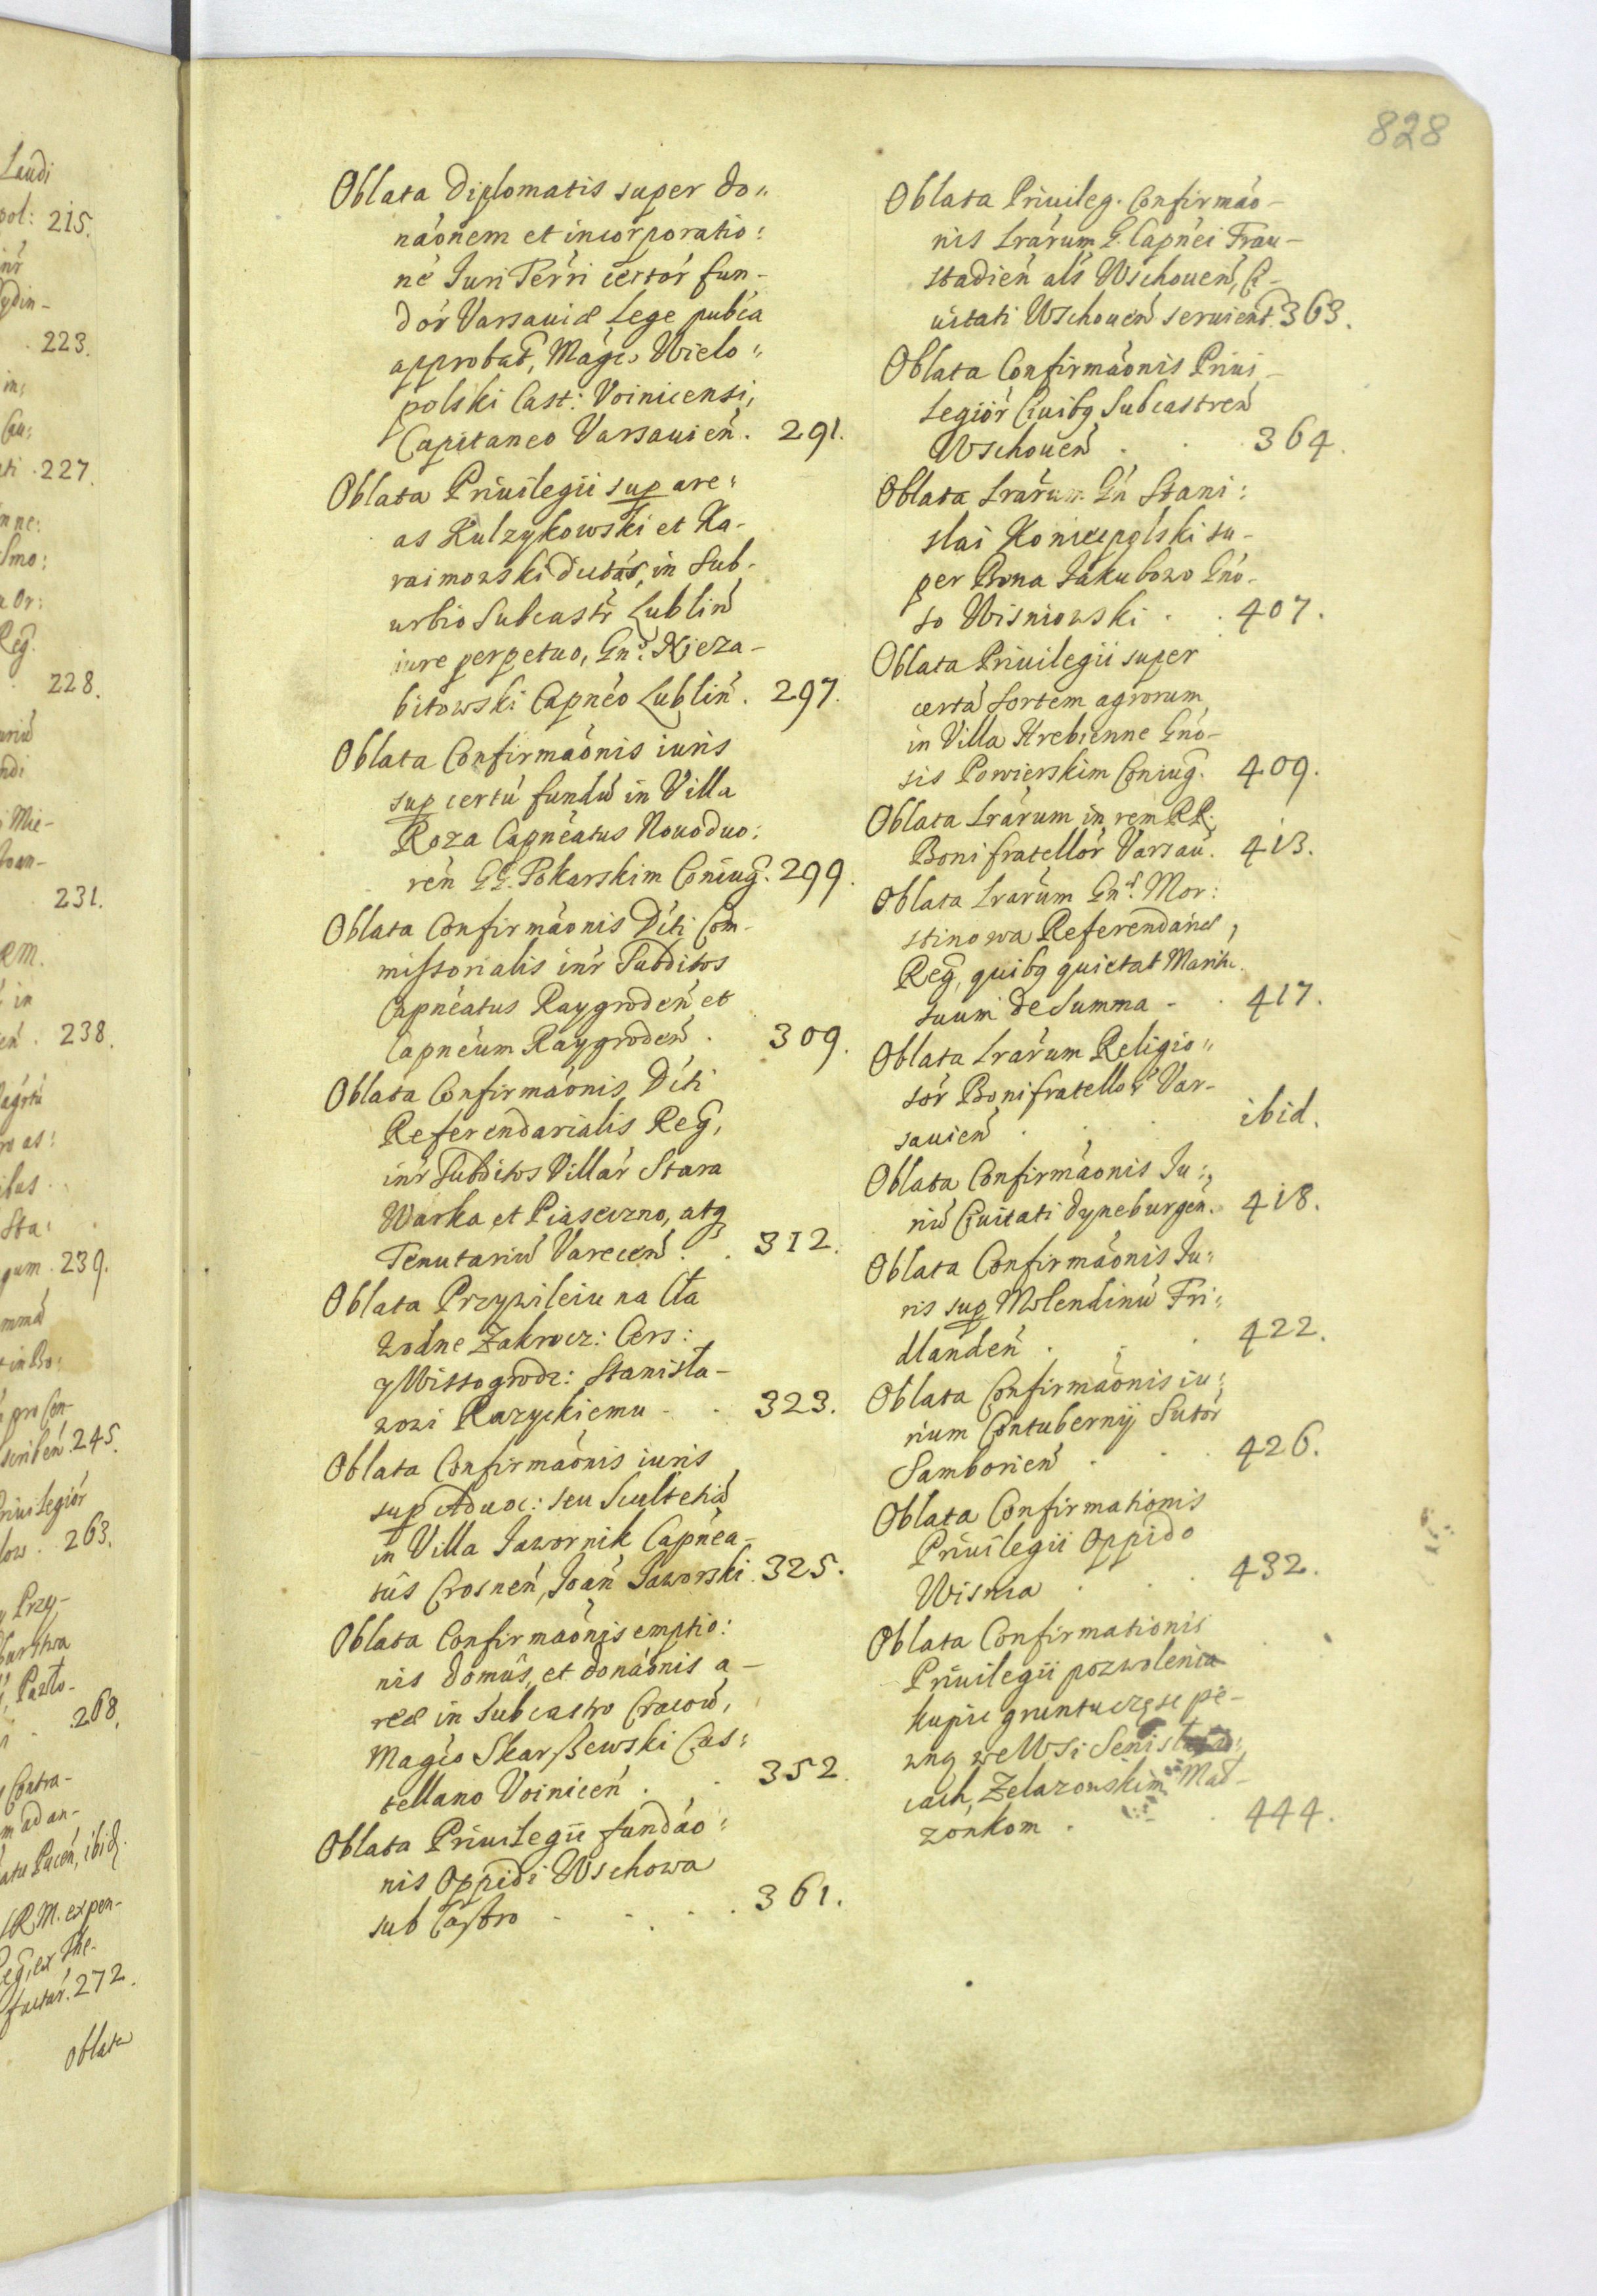 828
Oblata Diplomatis super do„
náonem et incorporatio:
né Juri Terri certór fun-
dór Varsauiæ Lege pubca
approbat, Magco Wielo„
polski Cast: Voinicensi,
Capitaneo Varsauień. 291.
Oblata Priuilegii sup are:
as Kulzykowski et Ka-
raimowski dictas, in Sub-
urbio Subcastr Lublin
iure perpetuo, Gnd. Nieza-
bitowski Capnéo Lublin. 297.
Oblata Confirmáonis iuris
sup certú fundu in Villa
Roza Capnéatus Nouoduo:
ren GG. Pokarskim Coniug. 299.
Oblata Confirmáonis Dcti Com-
missorialis inr Subditos
Capnéatus Raygroden et
Capnéum Raygroden . 309.
Oblata Confirmáonis Dcti
Referendarialis Reg,
inr Subditos Villar Stara
Warka et Piaseczno, atq
Tenutariu Varecen . . 312.
Oblata Przywileiu na Cła
wodne Zakrocz: Cers:
y Wissogrodz: Stanisła-
wowi Razyckiemu - . 323.
Oblata Confirmáonis iuris
sup Aduoc: seu Scultetia
in Villa Jawornik Capnéa-
tûs Crosnen, Joan Jaworski. 325.
Oblata Confirmáonis emptio:
nis domûs, et donáonis a-
reæ in Subcastro Cracou,
Magco Skarszewski Cas:
tellano Voinicen . . 352.
Oblata Priuilegii fundáo:
nis Oppidi Wschowa
sub Castro - - . . 361.
Oblata Priuileg. Confirmáo-
nis Lrarum G. Capnéi Frau-
stadien als Wschouen, Ci-
uitati Wschouen seruient. 363.
Oblata Confirmáonis Priui-
Legiór Ciuibq Subcastren
Wschouen . . . 364.
Oblata Lrarum Gn Stani:
slai Koniecpolski su-
per Bona Jakubowo Gno-
so Wisniowski . . 407.
Oblata Priuilegii super
certá sortem agrorum
in Villa Krebienne Gno-
sis Powierskim Coniug. 409.
Oblata Lrarum in rem RR.
Bonifratellor Varsau. 413.
Oblata Lrarum Gns. Mor:
stinowa Referendariæ,
Reg, quibq quietat Maritu
suum de Summa - . 417.
Oblata Lrarum Religio„
sór Bonifratellor Var-
sauien . . . ibid.
Oblata Confirmáonis Ju:
riu Ciuitati Dyneburgen. 418.
Oblata Confirmáonis Ju:
ris sup Molendinu Fri:
dlanden . . . 422.
Oblata Confirmáonis iu:
rium Contubernij Sutór
Samborien . . . 426.
Oblata Confirmationis
Priuilegii Oppido
Wisnia . . . 432.
Oblata Confirmationis
Priuilegii pozwolenia
kupic gruntu częsc pe-
wną we Wsi
cach, Zelazowskim Mał-
zonkom . . . 444.
Laudi
pol: 215.
223.
227.
228.
231.
238.
239.
245.
263.
268.
272.
Oblata